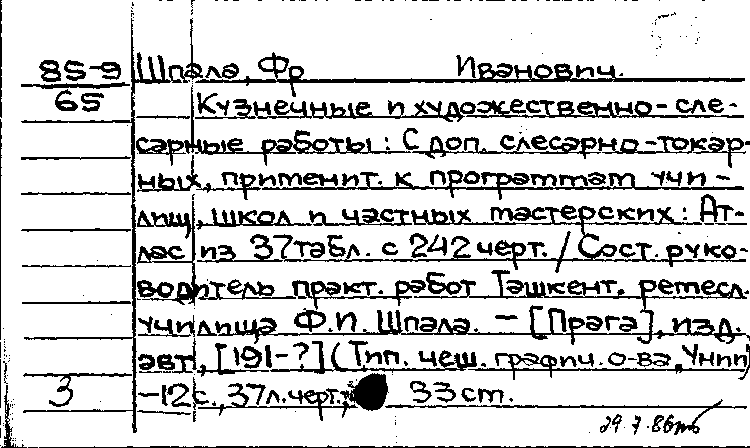 85-9 Шпала, Фр Иванович.
65 Кузнечные и художественно-сле-
сарные работы: С доп. слесарно-токар-
ных, применит. к программам учи-
лищ, школ и частных мастерских: Ат-
лас из 37 табл. с 242 черт. / Сост. руко-
водитель практ. работ Ташкент. ремесл.
училища Ф.И. Шпала. - [Прага], изд.
авт, [191-?] (Тип. чеш. графич. о-ва „Унии")
3 -12 с., 37 л. черт.; 33 см.
29.7.86